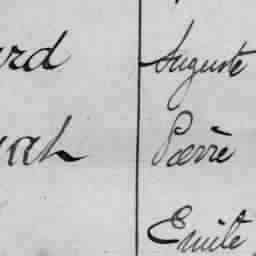 ard Auguste
Pierre
Emile